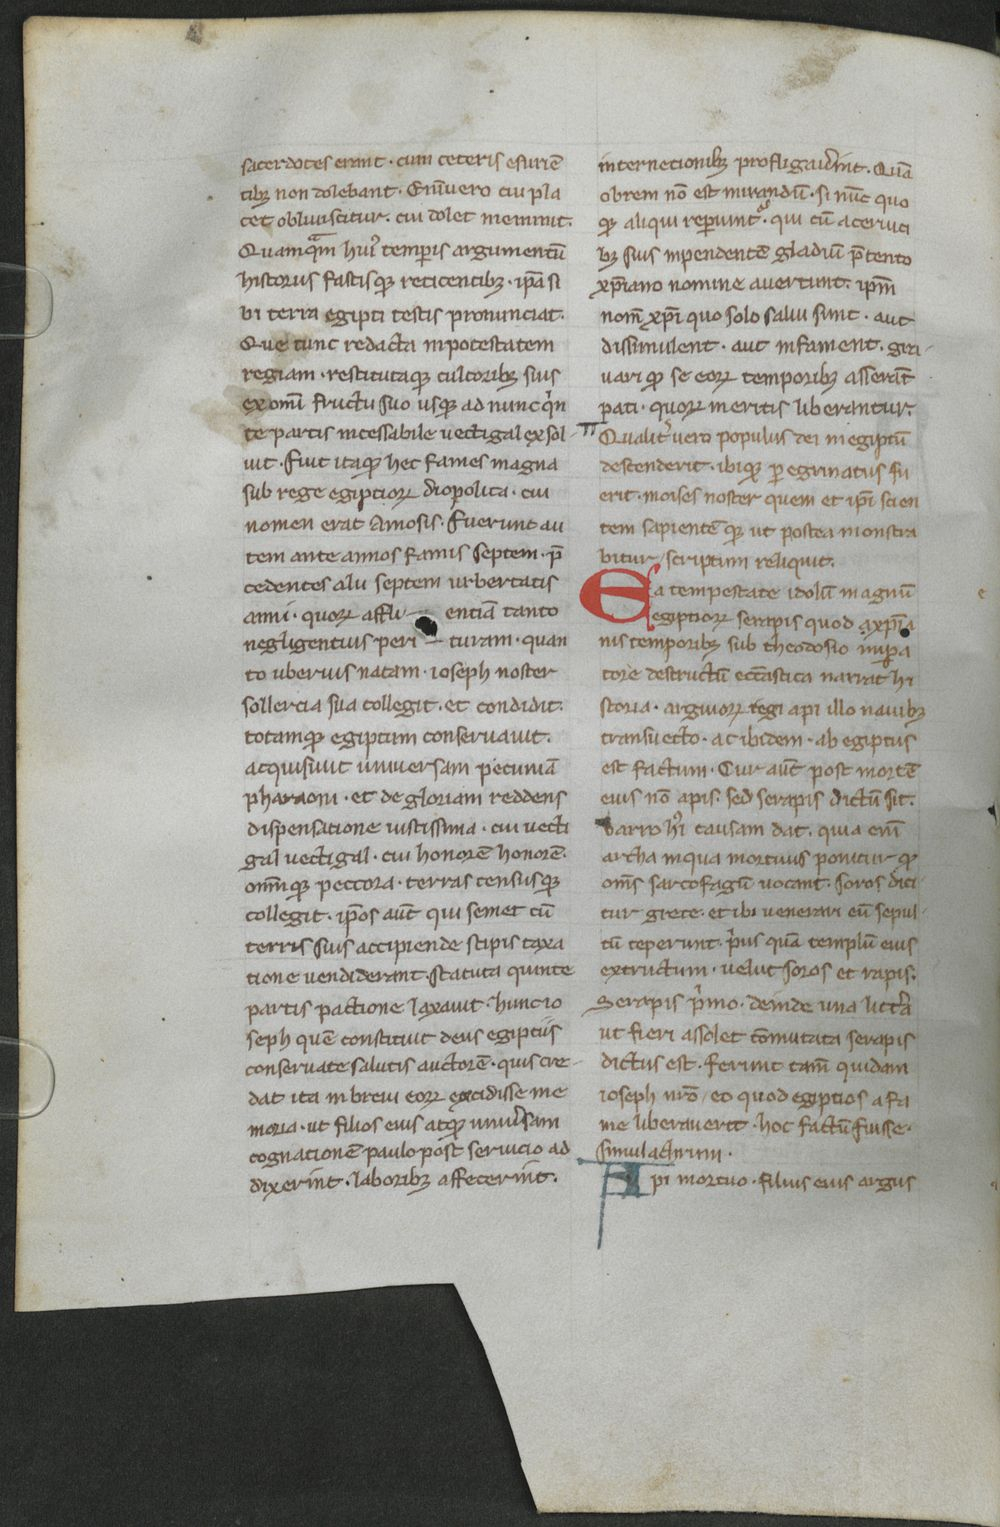 sacerdotes erant · cum ceteris esuriē
tibꝫ non dolebant · Eni᷑uero cui pla
cet obliuiscitur · cui dolet meminit.
Quamq̄m hui᷒ temꝑis argumentū
historiis fastisqꝫ reticentibꝫ · ip̄a si
bi terra egipti testis pronunciat.
Que tunc redacta inpotestatem
regiam · restitutaqꝫ cultoribꝫ suis
exomī fructu suo usqꝫ ad nunc qͥn
te partis incessabile uectigal exsol-
uit · fuit itaqꝫ hec fames magna
sub rege egiptioꝝ diopolita · cui
nomen erat Amosis · fuerunt au
tem ante annos famis septem · p̄
cedentes alii septem urbertatis
anni · quoꝝ afflu entiā tanto
negligentius peri turam · quan
to uberius natam · ioseph noster
sollercia sua collegit · et condidit.
totamqꝫ egiptum conseruauit.
acquisiuit uniuersam pecuniā
pharaoni · et de gloriam reddens
dispensatione iustissima · cui uecti
gal uectigal · cui honorē honorē ·
omnīqꝫ peccora · terras censusqꝫ
collegit · ip̄os aūt qui semet cū
terris suis accipiende stipis taxa
tione uendiderant · Statuta quinte
partis pactione laxauit · huncio
seph quē constituit deus egiptiis
conseruate salutis auctorē · quis cre-
dat ita in breui eoꝝ excidisse me
moria · ut filios eius atqꝫ uniuͥsam
cognationē paulo post seruicio ad
dixerint · laboribꝫ affecerint.
internecionibꝫ profligauerint · Quā
obrem nō est mirandū · si nūc quo
qꝫ aliqui reꝑiunt᷑ · qui cū a ceruici
bꝫ suis inpendentē gladiū p̄tento
xp̄iano nomine auertunt · ip̄m
nom̄ xp̄i quo solo salui sunt · aut
dissimulent · aut infament · gra-
uari qꝫ se eoꝝ temporibꝫ asserāt
pati · quoꝝ meritis liberantur.
Qualit᷑ uero populus dei in egiptū
descenderit · ibiqꝫ ꝑegrinatus fu
erit · moises noster quem et ip̄i scien
tem sapientēqꝫ ut postea monstra
bitur / scriptum reliquit.
Ea tempestate idolū magnū
egiptioꝝ serapis quod axp̄ia
nis temporibꝫ sub theodosio imꝑa
tore destructū ecc̄astica narrat hi
storia · argiuoꝝ regi api illo nauibꝫ
transuecto · ac ibidem · ab egiptiis
est factum · Cur aūt post mortē
eius nō apis · sed serapis dictū sit.
varro hͥ causam dat · quia enī
archa inqua mortuus ponitur qꝫ
om̄s sarcofagū uocant · soros dici-
tur grece · et ibi uenerari eū sepul-
tū ceperunt · pͥus quā templū eius
extructum · uelut soros et rapis.
Serapis pͥmo · deinde una litt̄a
ut fieri assolet cōmutata serapis
dictus est · ferunt tam̄ quidam
ioseph nr̄o / eo quod egiptios a fa
me liberauerit · hoc factū fuisse ·
simulachrum ·
Api mortuo · filius eius argus